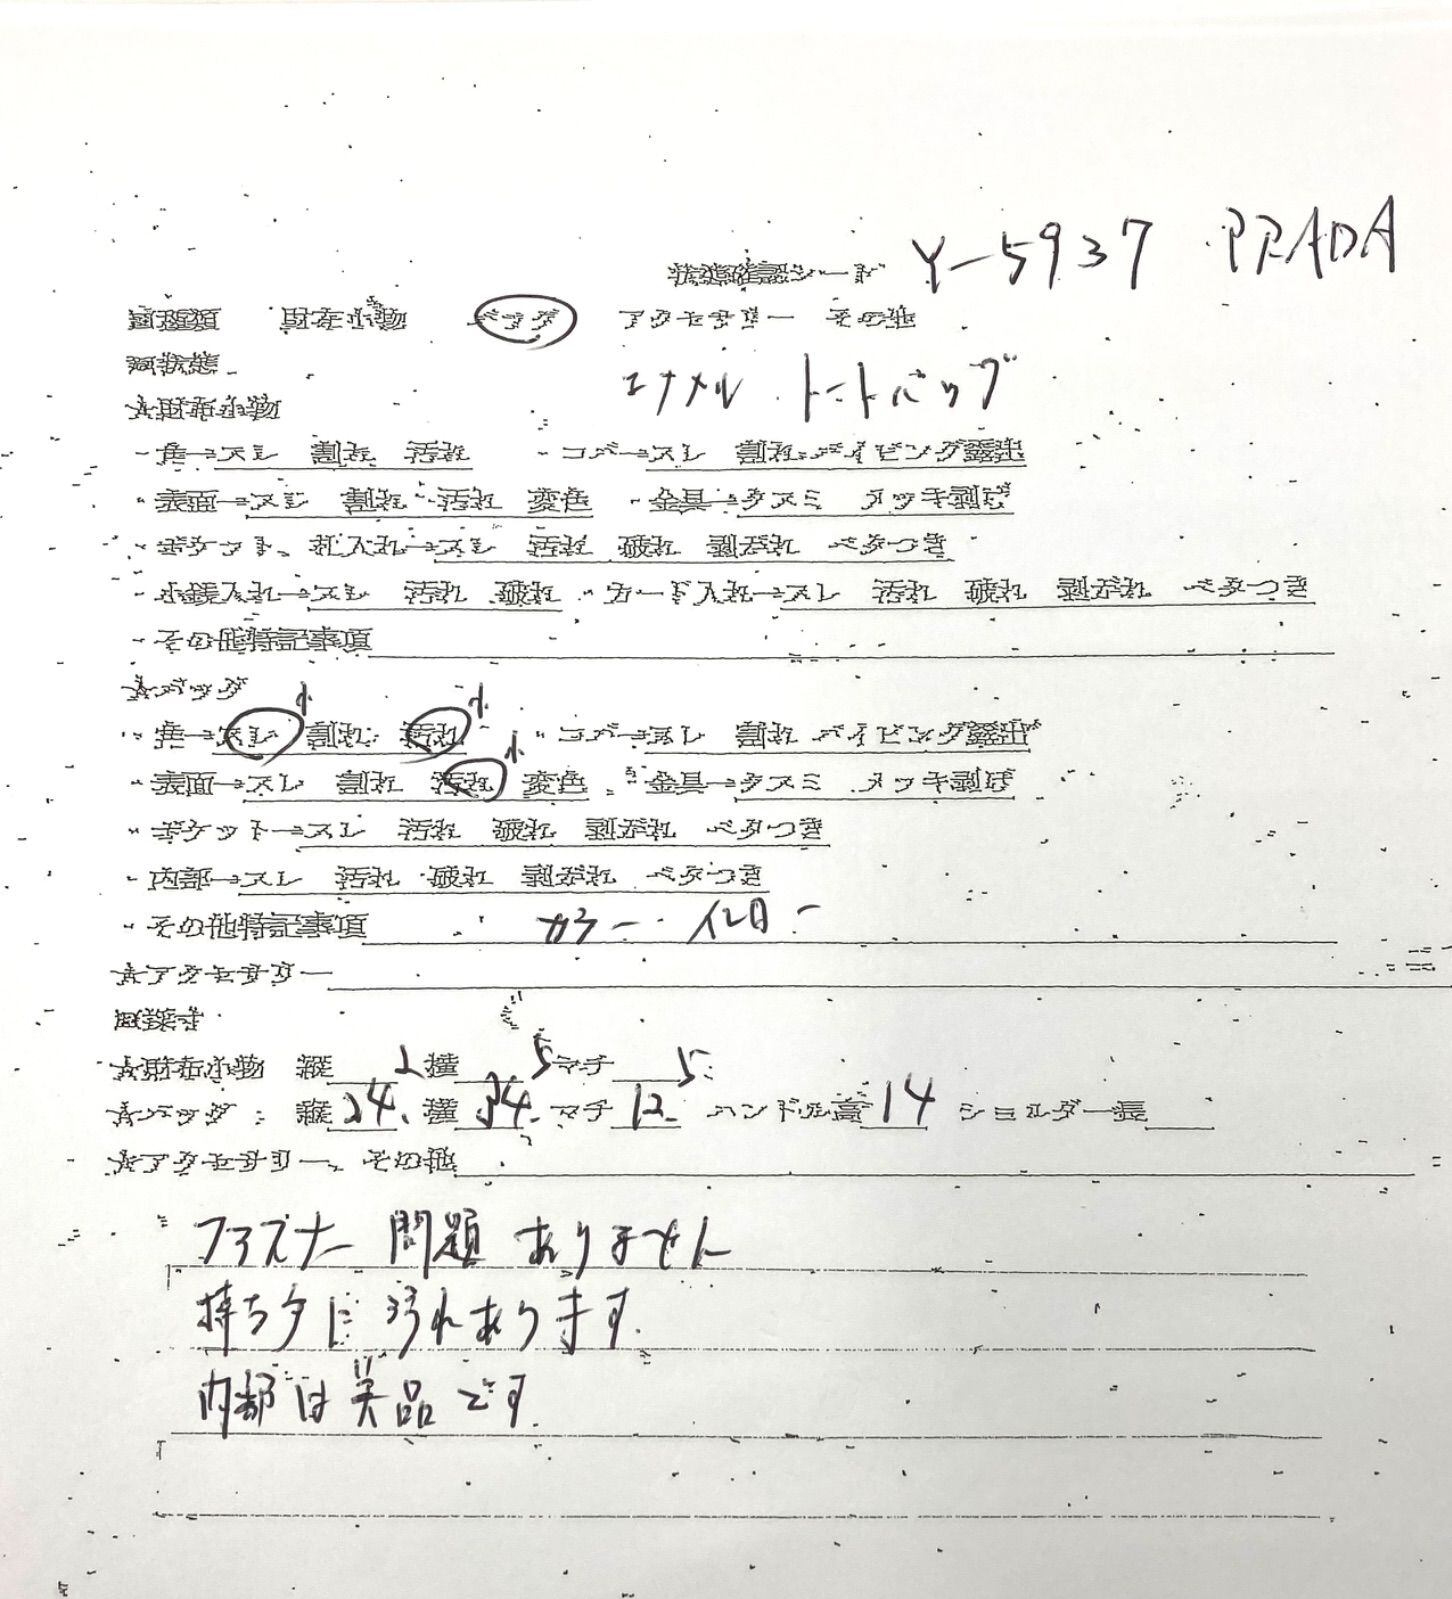 状態確認シート Y-5937 PRADA
□種類 財布小物 バッグ アクセサリー その他
□状態 エナメル トートバッグ
☆財布小物
・角→スレ 割れ 汚れ ・コバ→スレ 割れ パイピング露出
・表面→スレ 割れ 汚れ 変色 ・金具→クスミ メッキ剥げ
・ポケット、札入れ→スレ 汚れ 破れ 型汚れ ベタつき
・小銭入れ→スレ 汚れ 破れ ・カード入れ→スレ 汚れ 破れ ベタつき
・その他特記事項
☆バッグ
・角→スレ 小 割れ 汚れ 小 ・コバ→スレ 割れ パイピング露出
・表面→スレ 割れ 汚れ 小 変色 ・金具→クスミ メッキ剥げ
・ポケット→スレ 汚れ 破れ ベタつき
・内部→スレ 汚れ 破れ ベタつき
・その他特記事項 カラー
☆アクセサリー
□採寸
☆財布小物 縦 横 マチ
☆バッグ: 縦24 横34 マチ12 ハンドル高14 ショルダー長
☆アクセサリー、その他
ファスナー問題ありません
持ち手に汚れあります.
内部は美品です.